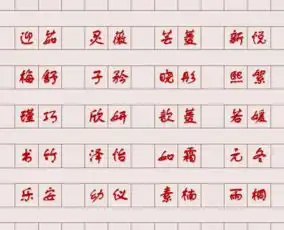 迎茹 灵薇 芸蔓 新悦
梅舒 子矜 晓彤 熙絮
瑾巧 欣妍 歆蔓 若媛
书竹 泽怡 如霜 元冬
乐安 幼仪 素楠 雨桐